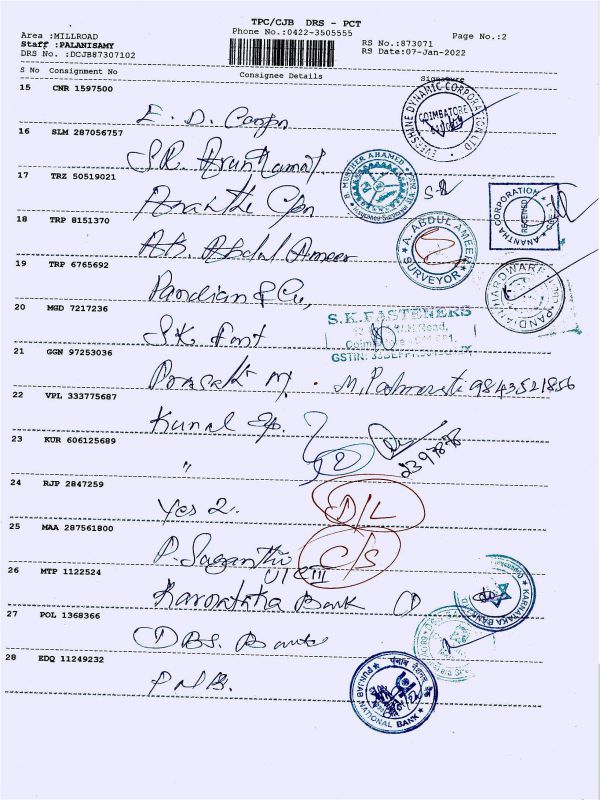 TPC/CJB DRS - PCT
Area :MILLROAD
Phone No.:0422-3505555
Page No.:2
Staff :PALANISAMY
RS No.:873071
DRS No. :DCJB87307102
RS Date:07-Jan-2022
S No Consignment No Consignee Details Signature
15 CNR 1597500
E. D. Corpn
EVERSHINE DYNAMIC CORPORATION LTD
COIMBATORE
16 SLM 287056757
S.R. Arun
B. MUNTHER AHAMED
17 TRZ 50519021
Anantha Cpn
ANANTHA CORPORATION
RECEIVED
CBE
18 TRP 8151370
AB. Abdul Ameer
A. ABDUL AMEER
SURVEYOR
19 TRP 6765692
Pandian & Co,
PANDIAN HARDWARE
20 MGD 7217236
S.K. Fast
S.K.FASTENERS
Road,
GSTIN:
21 GGN 97253036
Prasath M. M. Padmavati 9843521856
22 VPL 333775687
Kunal Ep.
2
23 KUR 606125689
"
24 RJP 2847259
Yes 2. D/L
25 MAA 287561800
P. Suganthi C/S
26 MTP 1122524
Karnataka Bank
KARNATAKA BANK
27 POL 1368366
DBS. Bank
28 EDQ 11249232
P N B.
पंजाब नैशनल बैंक
PUNJAB NATIONAL BANK